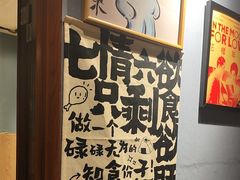 七情六欲
只剩食欲
做一个
碌碌无为的
知食份子
IN THE MO
FOR LO